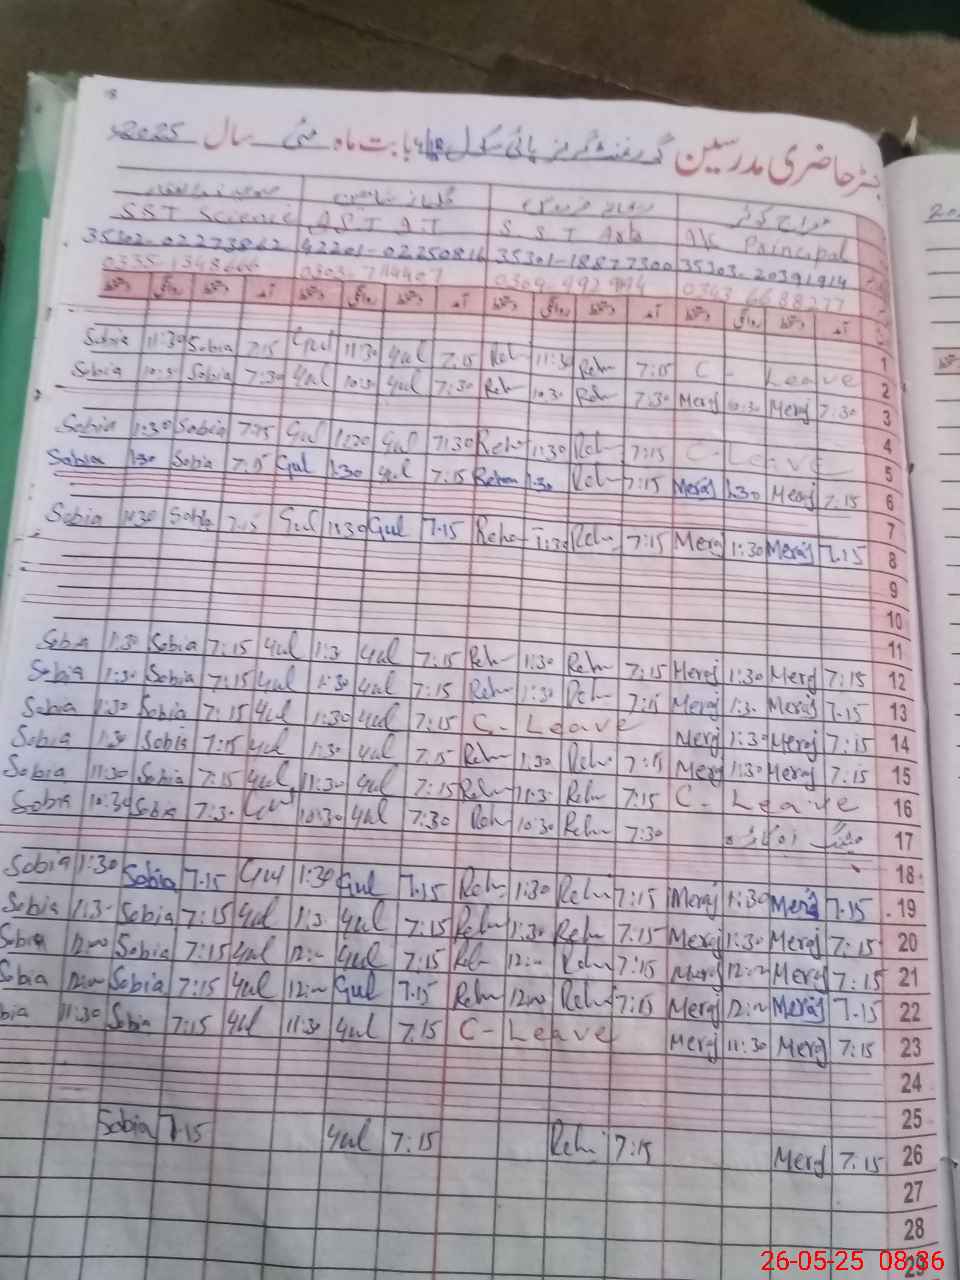 رجسٹر حاضری مدرسین گورنمنٹ گرلز ہائی سکول بابت ماہ مئی سال 2025
A/C Principal S S T Arts SST Science
35303-20391914 35301-18877300 42201-02250816
0343 6688277
آمد دستخط روانگی دستخط آمد دستخط روانگی دستخط آمد دستخط روانگی دستخط آمد دستخط روانگی دستخط
1
Sobia 11:30 Sobia 7:15 Gul 11:30 Gul 7:15 Reh 11:30 Reh 7:15 C - Leave 2
Sobia 10:30 Sobia 7:30 Gul 10:30 Gul 7:30 Reh 10:30 Reh 7:30 Meraj 10:30 Meraj 7:30 3
4
Sobia 1:30 Sobia 7:15 Gul 1:30 Gul 7:30 Reh 1:30 Reh 7:15 C-Leave 5
Sobia 1:30 Sobia 7:15 Gul 1:30 Gul 7:15 Rehan 1:30 Reh 7:15 Meraj 1:30 Meraj 7:15 6
7
Sobia 1:30 Sobia 7:15 Gul 1:30 Gul 7.15 Reha 1:30 Reh 7:15 Meraj 1:30 Meraj 7.15 8
9
10
11
Sobia 1:30 Sobia 7:15 Gul 1:3 Gul 7:15 Reh 1:30 Reh 7:15 Meraj 1:30 Meraj 7:15 12
Sobia 1:30 Sobia 7:15 Gul 1:30 Gul 7:15 Reh 1:30 Reh 7:15 Meraj 1:30 Meraj 7.15 13
Sobia 1:30 Sobia 7:15 Gul 1:30 Gul 7:15 C - Leave Meraj 1:30 Meraj 7:15 14
Sobia 1:30 Sobia 7:15 Gul 1:30 Gul 7:15 Reh 1:30 Reh 7:15 Meraj 1:30 Meraj 7:15 15
Sobia 11:30 Sobia 7:15 Gul 11:30 Gul 7:15 Reh 11:30 Reh 7:15 C - Leave 16
Sobia 10:30 Sobia 7:30 Gul 10:30 Gul 7:30 Reh 10:30 Reh 7:30 17
18
Sobia 1:30 Sobia 7.15 Gul 1:30 Gul 7.15 Reh 1:30 Reh 7:15 Meraj 1:30 Meraj 7.15 19
Sobia 1:3 Sobia 7:15 Gul 1:3 Gul 7:15 Reh 1:30 Reh 7:15 Meraj 1:30 Meraj 7:15 20
Sobia 12:00 Sobia 7:15 Gul 12:00 Gul 7:15 Reh 12:00 Reh 7:15 Meraj 12:00 Meraj 7:15 21
Sobia 12:00 Sobia 7:15 Gul 12:00 Gul 7.15 Reh 12:00 Reh 7:15 Meraj 12:00 Meraj 7.15 22
bia 11:30 Sobia 7:15 Gul 11:30 Gul 7:15 C - Leave Meraj 11:30 Meraj 7:15 23
24
25
Sobia 7.15 Gul 7:15 Reh 7:15 Meraj 7.15 26
27
28
29
26-05-25 08:36